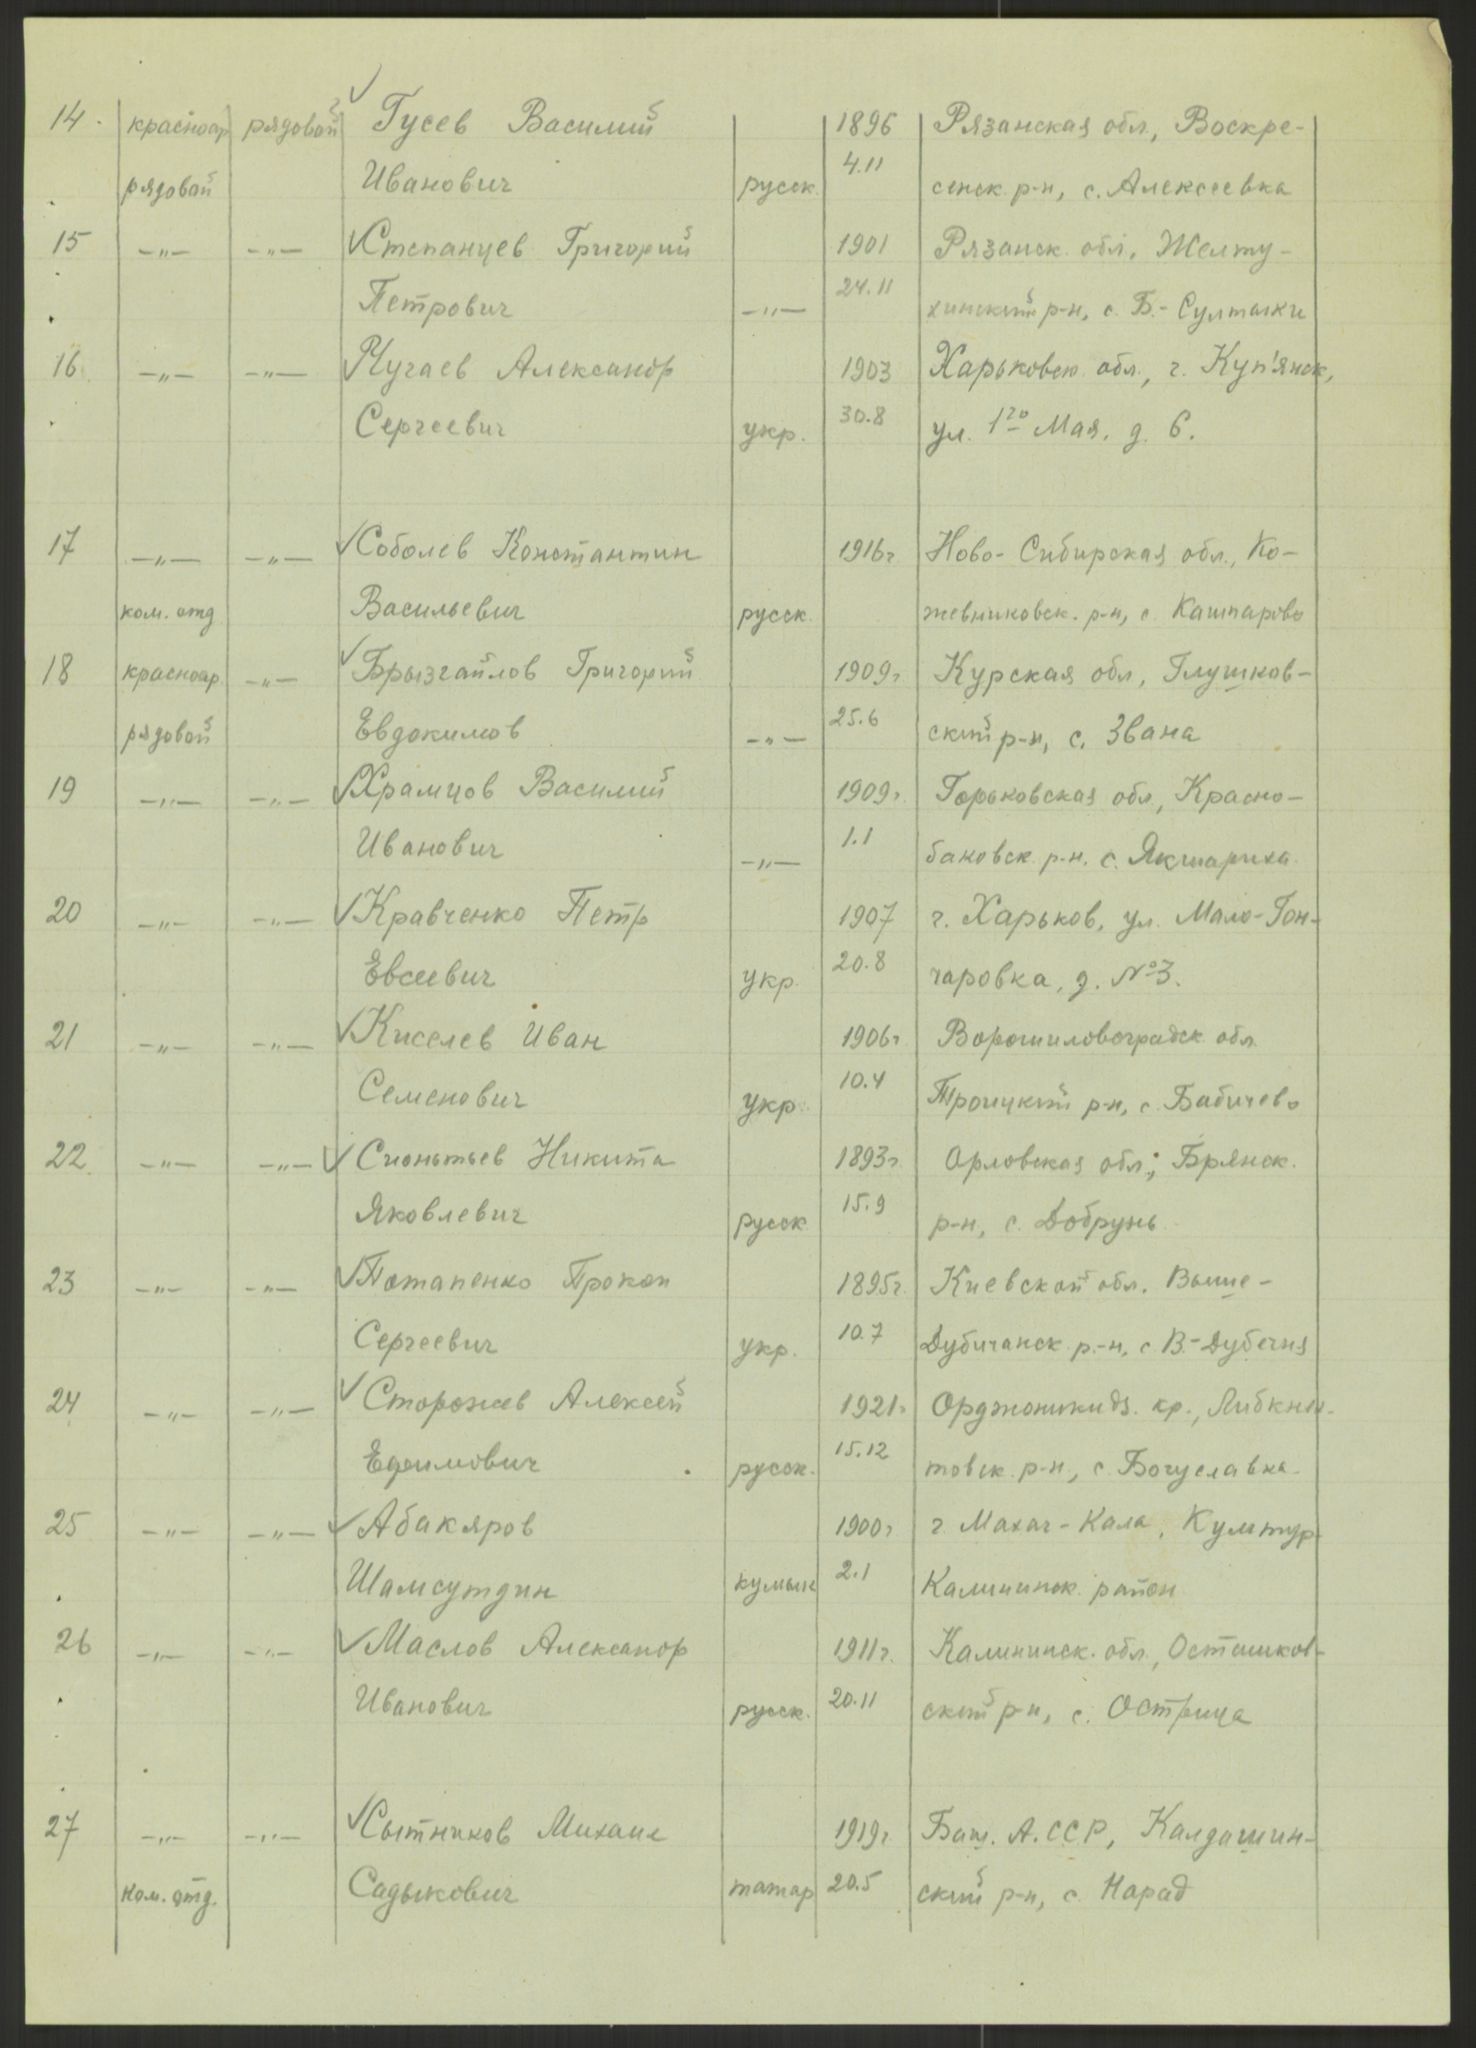 14. красноар рядовой Гусев Василий 1896 Рязанская обл., Воскре-
рядовой Иванович русск. 4.11 сенск. р-н, с. Алексеевка
15 -"- -"- Степанцев Григорий 1901 Рязанск. обл. Желту-
Петрович -"- 24.11 хинский р-н, с. Б.-Султанки
16 -"- -"- Чугаев Александр 1903 Харьковск. обл., г. Куп'янск,
Сергеевич укр. 30.8 ул. 1го Мая, д. 6.
17 -"- -"- Соболев Константин 1916г Ново-Сибирская обл., Ко-
ком. отд Васильевич русск. жевниковск. р-н, с. Кашпарово
18 красноар -"- Брызгайлов Григорий 1909г Курская обл, Глушков-
рядовой Евдокимов -"- 25.6 ский р-н, с. Звана
19 -"- -"- Храмцов Василий 1909г. Горьковская обл, Красно-
Иванович -"- 1.1 баковск. р-н. с. Якшариха
20 -"- -"- Кравченко Петр 1907 г. Харьков, ул. Мало-Гон-
Евсеевич укр. 20.8 чаровка, д. №3.
21 -"- -"- Киселев Иван 1906г Ворошиловоградск обл
Семенович укр. 10.4 Троицкий р-н, с. Бабичево
22 -"- -"- Сионтьев Никита 1893г Орловская обл., Брянск.
Яковлевич русск 15.9 р-н, с. Добрунь
23 -"- -"- Потапенко Прокоп 1895г. Киевской обл. Выше-
Сергеевич укр. 10.7 Дубичанск. р-н, с В.-Дубечня
24 -"- -"- Сторожев Алексей 1921г Орджоникидз. кр., Либкнх-
Ефимович русск. 15.12 товск. р-н, с. Богуславка
25 -"- -"- Абакяров 1900г г. Махач-Кала, Культур
Шамсутдин кумык 2.1 Калининск. район
26 -"- -"- Маслов Александр 1911г. Калининск. обл., Осташков-
Иванович русск. 20.11 ский р-н, с. Острица
27 -"- -"- Сытников Михаил 1919г Баш. А.ССР, Калдашин-
ком. отд. Садыкович татар 20.5 ский р-н, с. Нарад